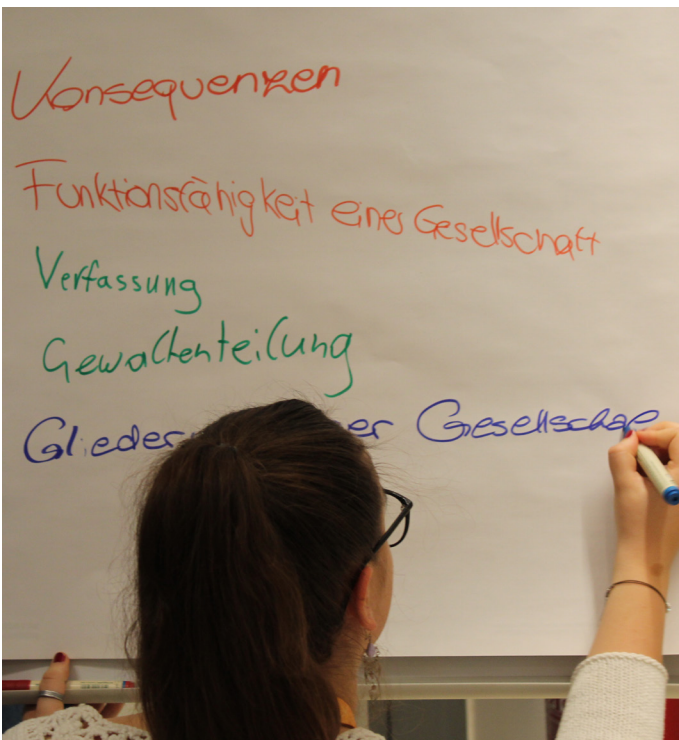 Konsequenzen
Funktionsfähigkeit einer Gesellschaft
Verfassung
Gewaltenteilung
Gesellschaf